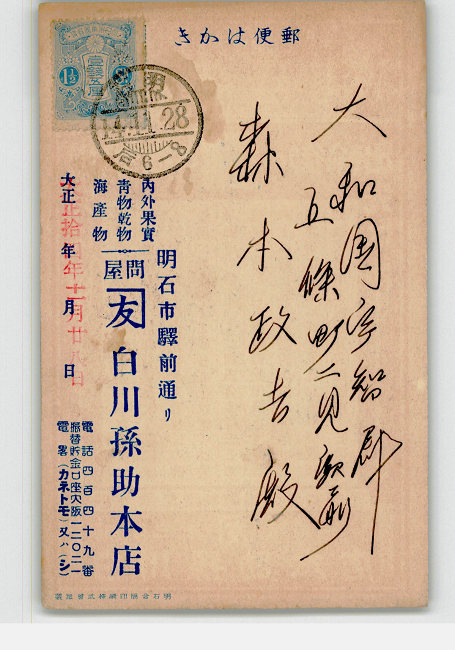 郵便はかき
大和國宇智郡
五條町二見驛前
森本政吉殿
明石市驛前通り
内外果實
青物乾物
海產物
問屋
友 白川孫助本店
大正 年 月 日
大正拾四年十一月廿八日
電話四百四十九番
振替貯金口座大阪一二〇二一
電畧(カネトモ)又ハ(シ)
明石
14.11.28
6-8